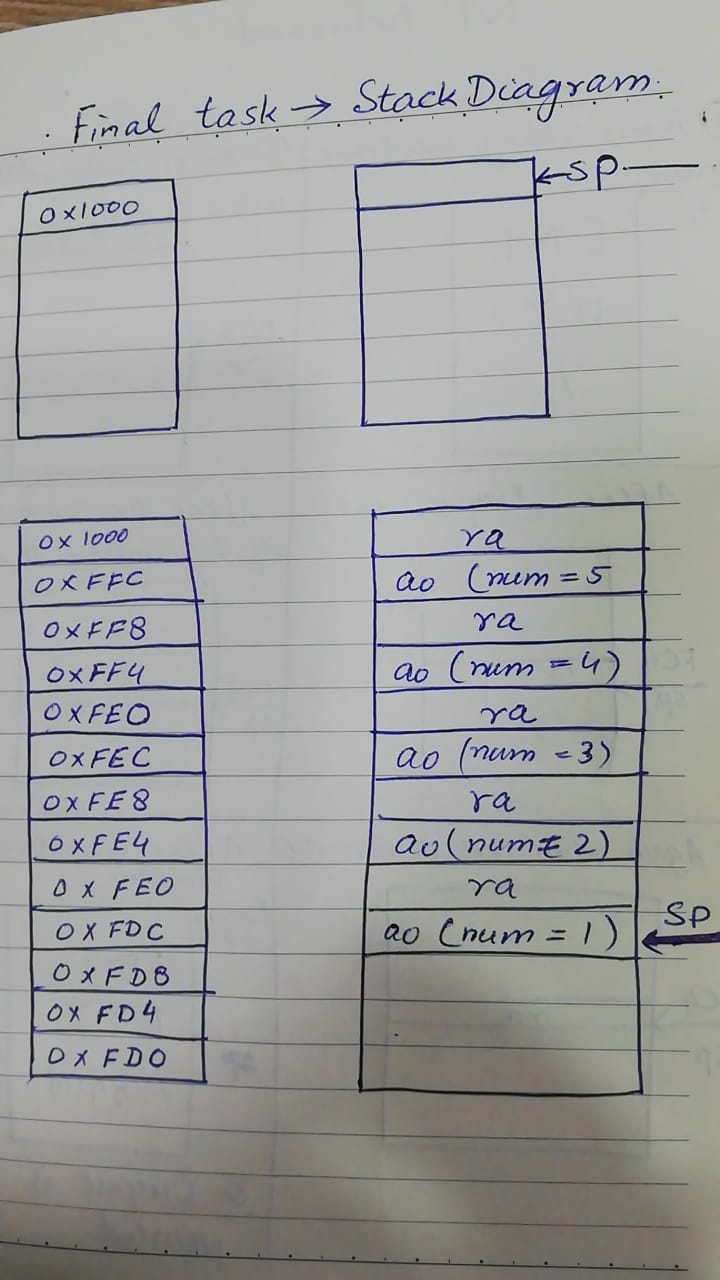 Final task → Stack Diagram.
0x1000
←SP
0x1000 ra
0xFFC a0 (num = 5
0xFF8 ra
0xFF4 a0 (num = 4)
0xFE0 ra
0xFEC a0 (num = 3)
0xFE8 ra
0xFE4 a0 (num = 2)
0xFE0 ra
0xFDC a0 (num = 1) ← SP
0xFD8
0xFD4
0xFD0